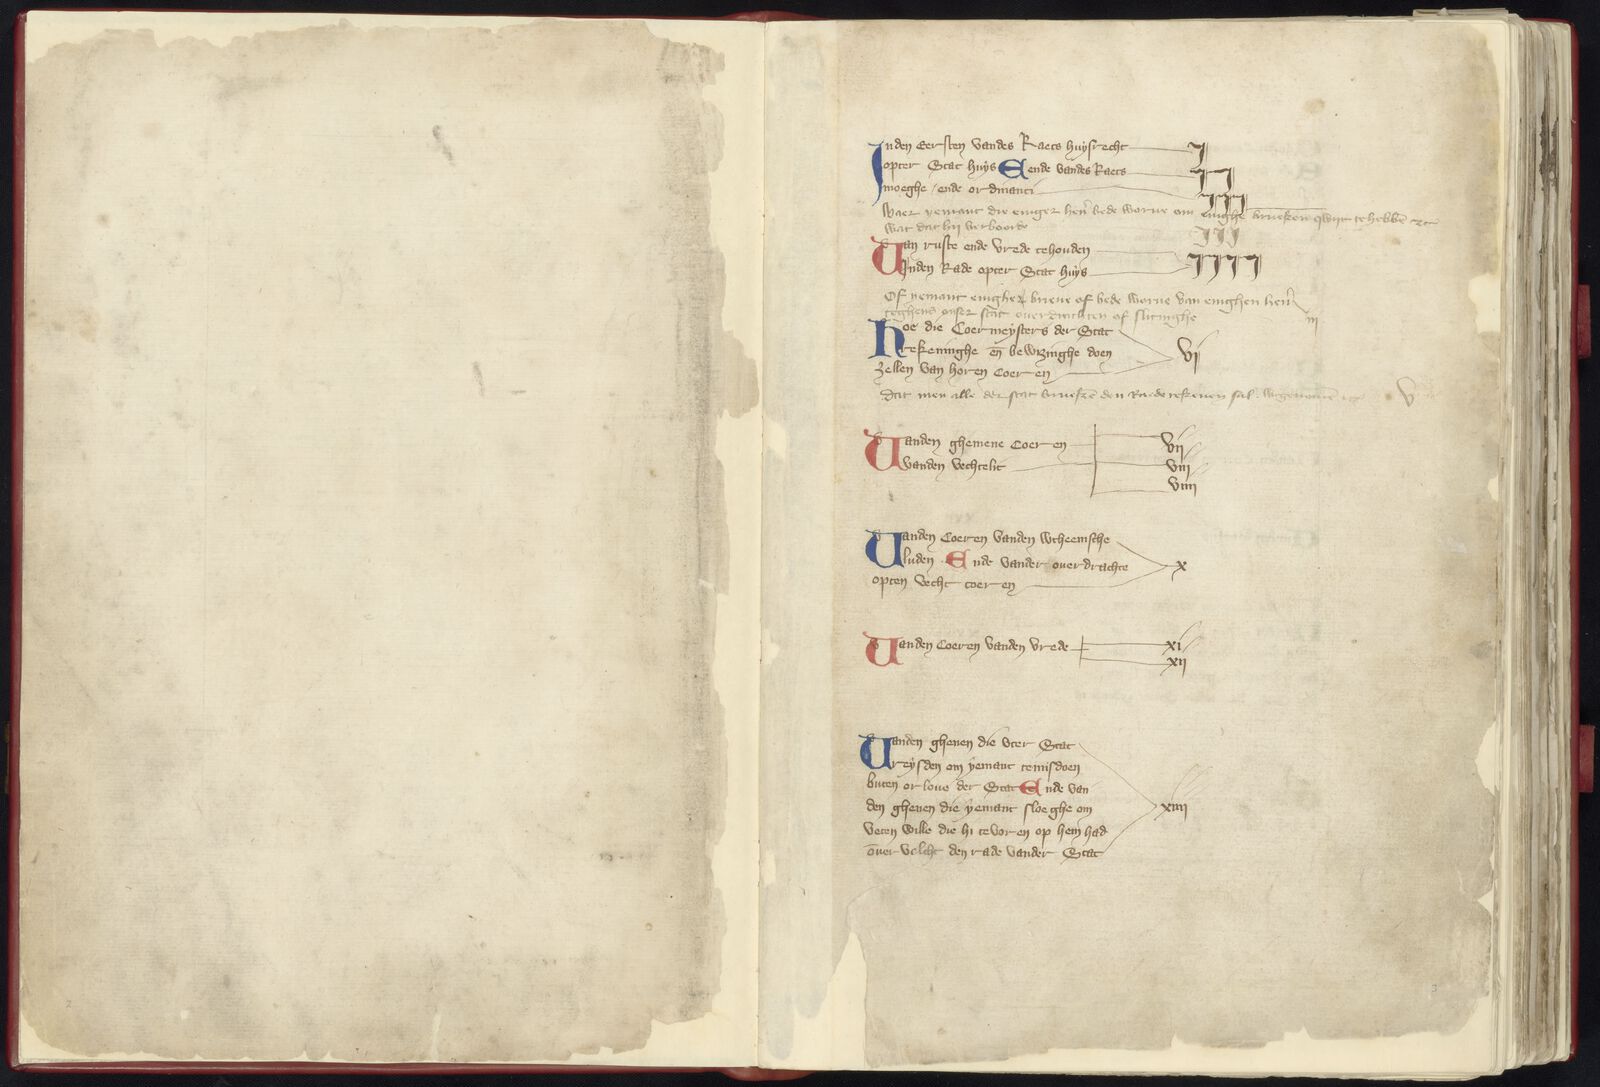 Inden Eersten vandes Raets huysrecht I
opter Stat huys Eende vandes Raets II
moeghe / ende ordinanci III
Waer yemant die eniger hen bede worve om enighe brueken qwijt te hebben etc
wat dat hij verboerde III
Van ruste ende vrede tehouden
Inden Rade opter Stat huys IIII
Of yemant enigher brieve of bede worve van enighen hen
teghens onser stat overdrachten of slitinghe iij
Hoe die Coermeysters der Stat
rekeninghe en bewizinghe doen vi
zellen van horen Coeren
Dat men alle der stat brueken den Raede rekenen sal V
Vanden ghemene Coeren vii
vanden vechtelic viii
viiii
Vanden Coeren vanden wtheemsche
luden . Ende vander overdrachte x
opten vecht coeren
Vanden Coeren vanden vrede xi
xii
Vanden ghenen die vter Stat
reysden om yemant temisdoen
buten orlove der Stat Ende van
den ghenen die yemant sloeghe om xiiii
veten wille die hi tevoren op hem had
over volcht den rade vander Stat
2
3